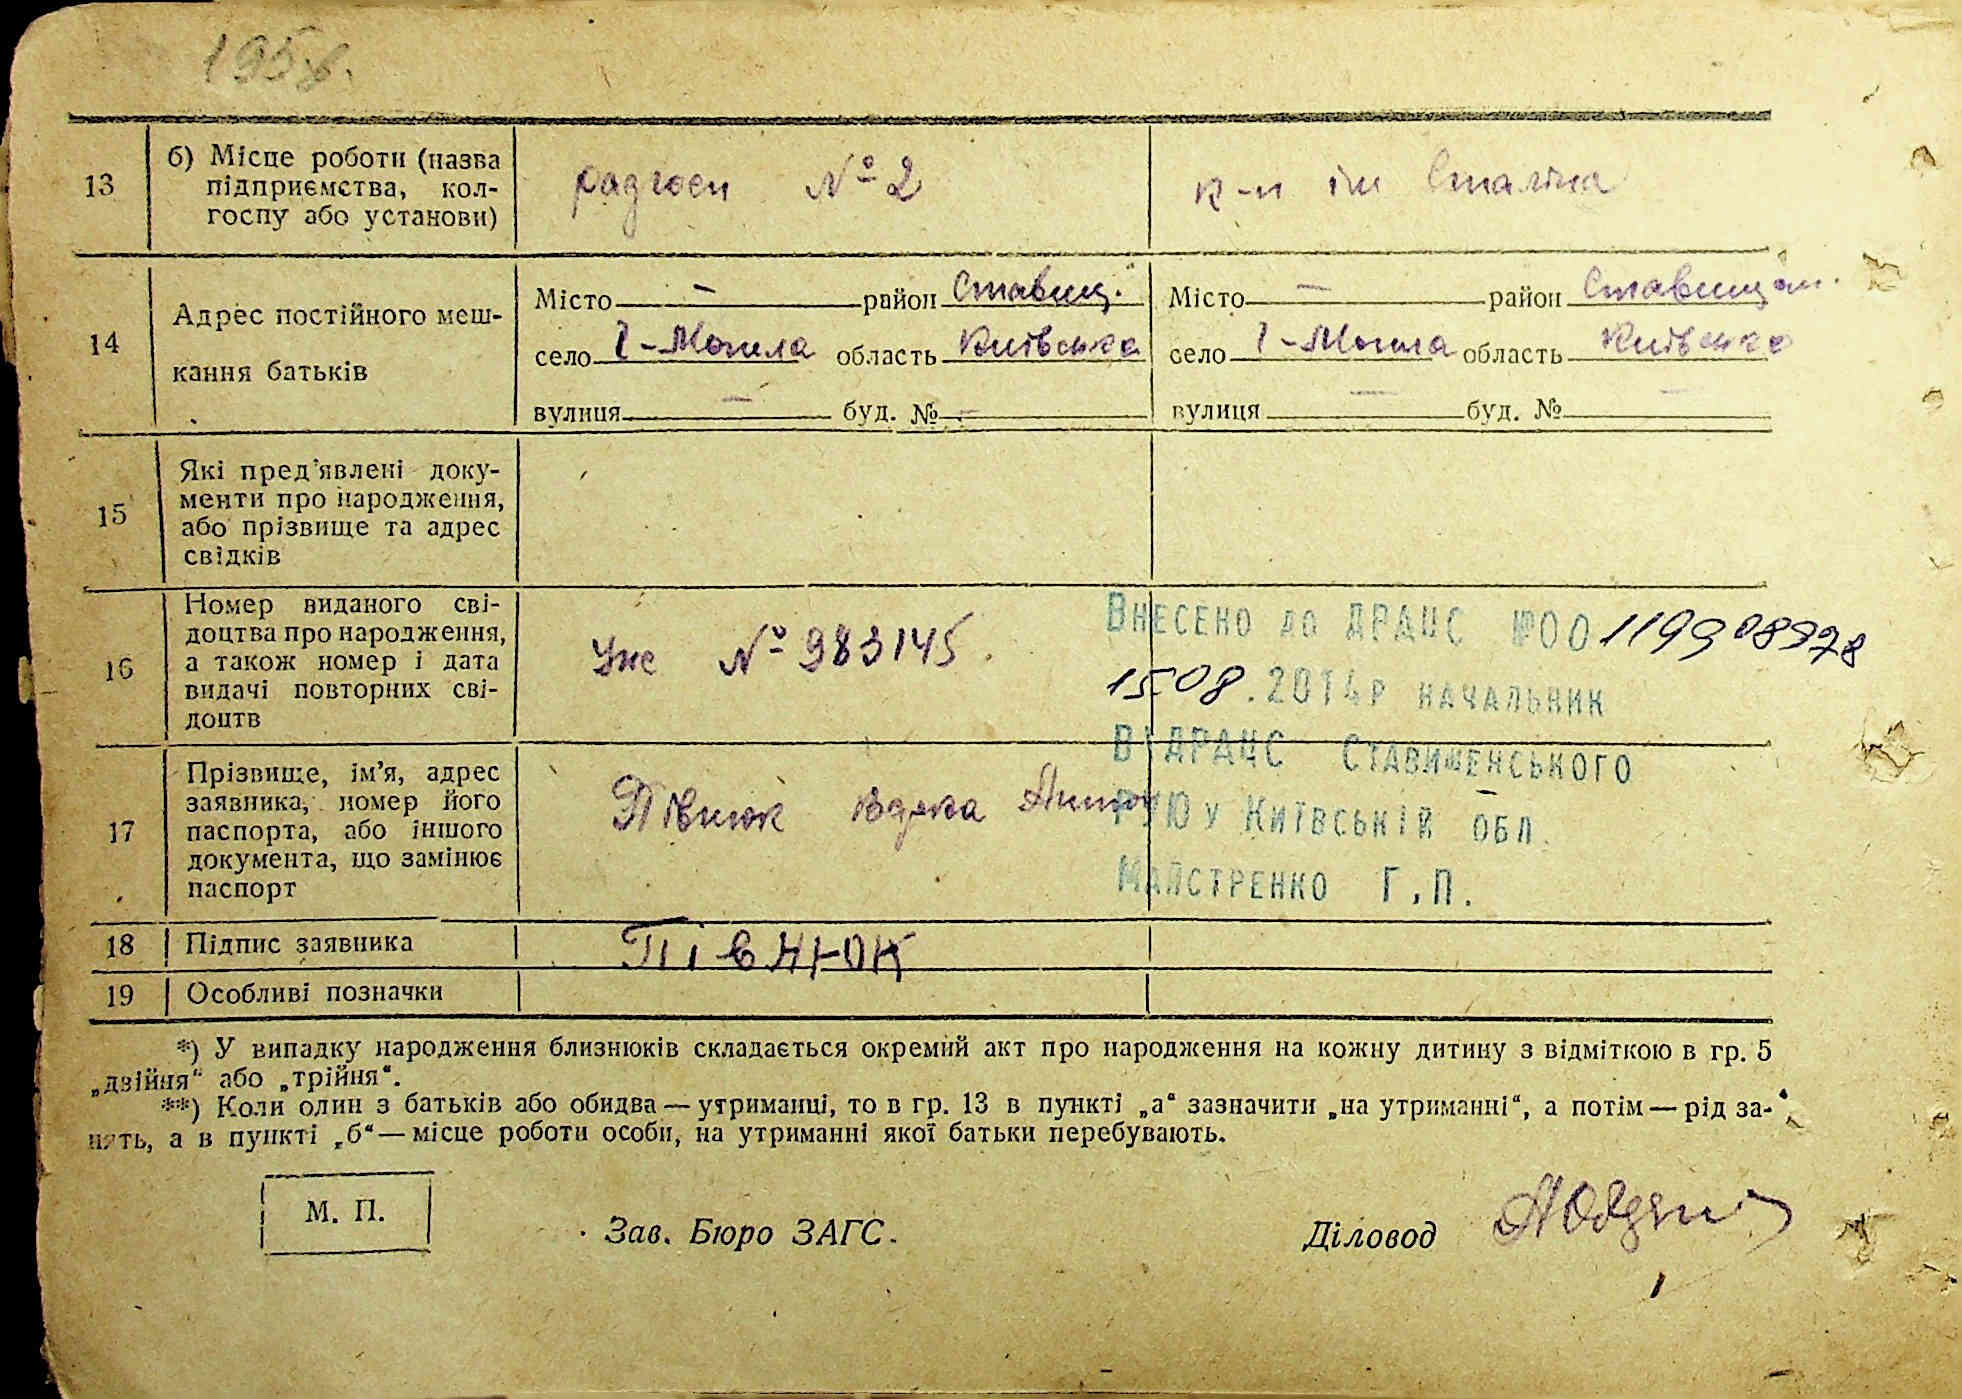 13
б) Місце роботи (назва
підприємства, кол-
госпу або установи)
радгосп № 2
к-п ім Сталіна
14
Адрес постійного меш-
кання батьків
Місто — район Ставищ.
село Р-Могила область Київська
вулиця — буд. № —
Місто — район Ставищан.
село Р-Могила область Київська
вулиця — буд. №
15
Які пред'явлені доку-
менти про народження,
або прізвище та адрес
свідків
16
Номер виданого сві-
доцтва про народження,
а також номер і дата
видачі повторних сві-
доцтв
№ 983145.
Внесено до ДРАЦС №00119908978
15.08.2014р начальник
ВДРАЦС Ставищенського
РУЮ у Київській обл.
Майстренко Г.П.
17
Прізвище, ім'я, адрес
заявника, номер його
паспорта, або іншого
документа, що замінює
паспорт
Півнюк
18
Підпис заявника
Півнюк
19
Особливі позначки
*) У випадку народження близнюків складається окремий акт про народження на кожну дитину з відміткою в гр. 5
„двійня“ або „трійня“.
**) Коли один з батьків або обидва — утриманці, то в гр. 13 в пункті „а“ зазначити „на утриманні“, а потім — рід за-
нять, а в пункті „б“ — місце роботи особи, на утриманні якої батьки перебувають.
М. П.
Зав. Бюро ЗАГС.
Діловод